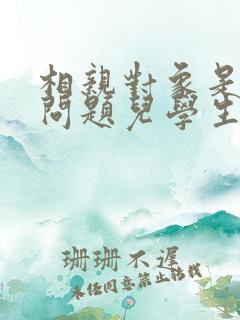 相親對象是
問題兒學生
珊珊不遲
未经同意禁止转载